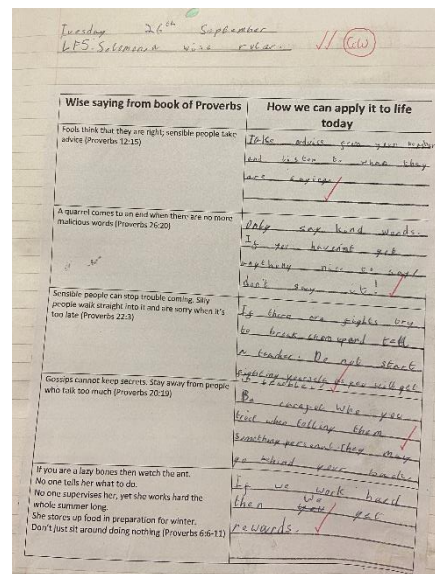 Tuesday 26th September
LF5. Solomon a wise ruler.
Wise saying from book of Proverbs
How we can apply it to life
today
Fools think that they are right; sensible people take
advice (Proverbs 12:15)
Take advice from your
and listen to what they
are saying
A quarrel comes to an end when there are no more
malicious words (Proverbs 26:20)
Only say kind words.
If you haven't got
anything nice to say
don't say it!
Sensible people can stop trouble coming. Silly
people walk straight into it and are sorry when it's
too late (Proverbs 22:3)
If there are fights try
to break them up and tell
a teacher. Do not start
fighting yourself or you will get
in trouble.
Gossips cannot keep secrets. Stay away from people
who talk too much (Proverbs 20:19)
Be careful who you
trust when telling them
something personal. They may
go behind your
If you are a lazy bones then watch the ant.
No one tells her what to do.
No one supervises her, yet she works hard the
whole summer long.
She stores up food in preparation for winter.
Don't just sit around doing nothing (Proverbs 6:6-11)
If we work hard
then we get
rewards.